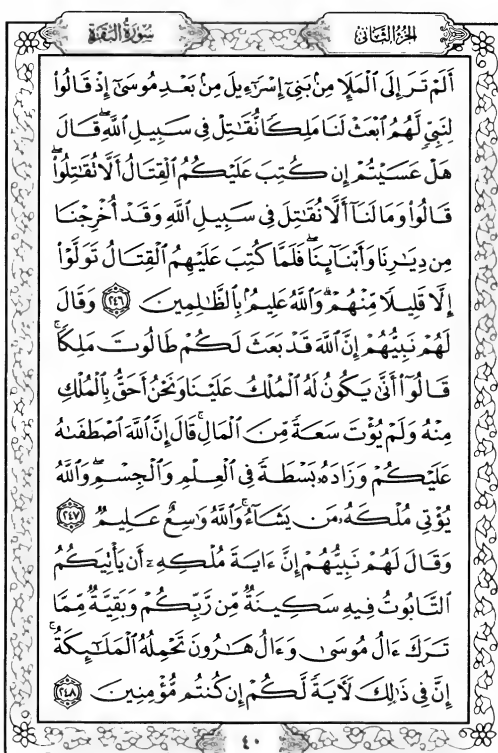 الجزء الثاني
سورة البقرة
أَلَمْ تَرَ إِلَى ٱلْمَلَإِ مِنۢ بَنِىٓ إِسْرَٰٓءِيلَ مِنۢ بَعْدِ مُوسَىٰٓ إِذْ قَالُوا۟
لِنَبِىٍّ لَّهُمُ ٱبْعَثْ لَنَا مَلِكًا نُّقَٰتِلْ فِى سَبِيلِ ٱللَّهِۖ قَالَ
هَلْ عَسَيْتُمْ إِن كُتِبَ عَلَيْكُمُ ٱلْقِتَالُ أَلَّا تُقَٰتِلُوا۟ۖ
قَالُوا۟ وَمَا لَنَآ أَلَّا نُقَٰتِلَ فِى سَبِيلِ ٱللَّهِ وَقَدْ أُخْرِجْنَا
مِن دِيَٰرِنَا وَأَبْنَآئِنَاۖ فَلَمَّا كُتِبَ عَلَيْهِمُ ٱلْقِتَالُ تَوَلَّوْا۟
إِلَّا قَلِيلًا مِّنْهُمْۗ وَٱللَّهُ عَلِيمٌۢ بِٱلظَّٰلِمِينَ ٢٤٦ وَقَالَ
لَهُمْ نَبِيُّهُمْ إِنَّ ٱللَّهَ قَدْ بَعَثَ لَكُمْ طَالُوتَ مَلِكًاۚ
قَالُوٓا۟ أَنَّىٰ يَكُونُ لَهُ ٱلْمُلْكُ عَلَيْنَا وَنَحْنُ أَحَقُّ بِٱلْمُلْكِ
مِنْهُ وَلَمْ يُؤْتَ سَعَةً مِّنَ ٱلْمَالِۚ قَالَ إِنَّ ٱللَّهَ ٱصْطَفَىٰهُ
عَلَيْكُمْ وَزَادَهُۥ بَسْطَةً فِى ٱلْعِلْمِ وَٱلْجِسْمِۖ وَٱللَّهُ
يُؤْتِى مُلْكَهُۥ مَن يَشَآءُۚ وَٱللَّهُ وَٰسِعٌ عَلِيمٌ ٢٤٧
وَقَالَ لَهُمْ نَبِيُّهُمْ إِنَّ ءَايَةَ مُلْكِهِۦٓ أَن يَأْتِيَكُمُ
ٱلتَّابُوتُ فِيهِ سَكِينَةٌ مِّن رَّبِّكُمْ وَبَقِيَّةٌ مِّمَّا
تَرَكَ ءَالُ مُوسَىٰ وَءَالُ هَٰرُونَ تَحْمِلُهُ ٱلْمَلَٰٓئِكَةُۚ
إِنَّ فِى ذَٰلِكَ لَءَايَةً لَّكُمْ إِن كُنتُم مُّؤْمِنِينَ ٢٤٨
٤٠